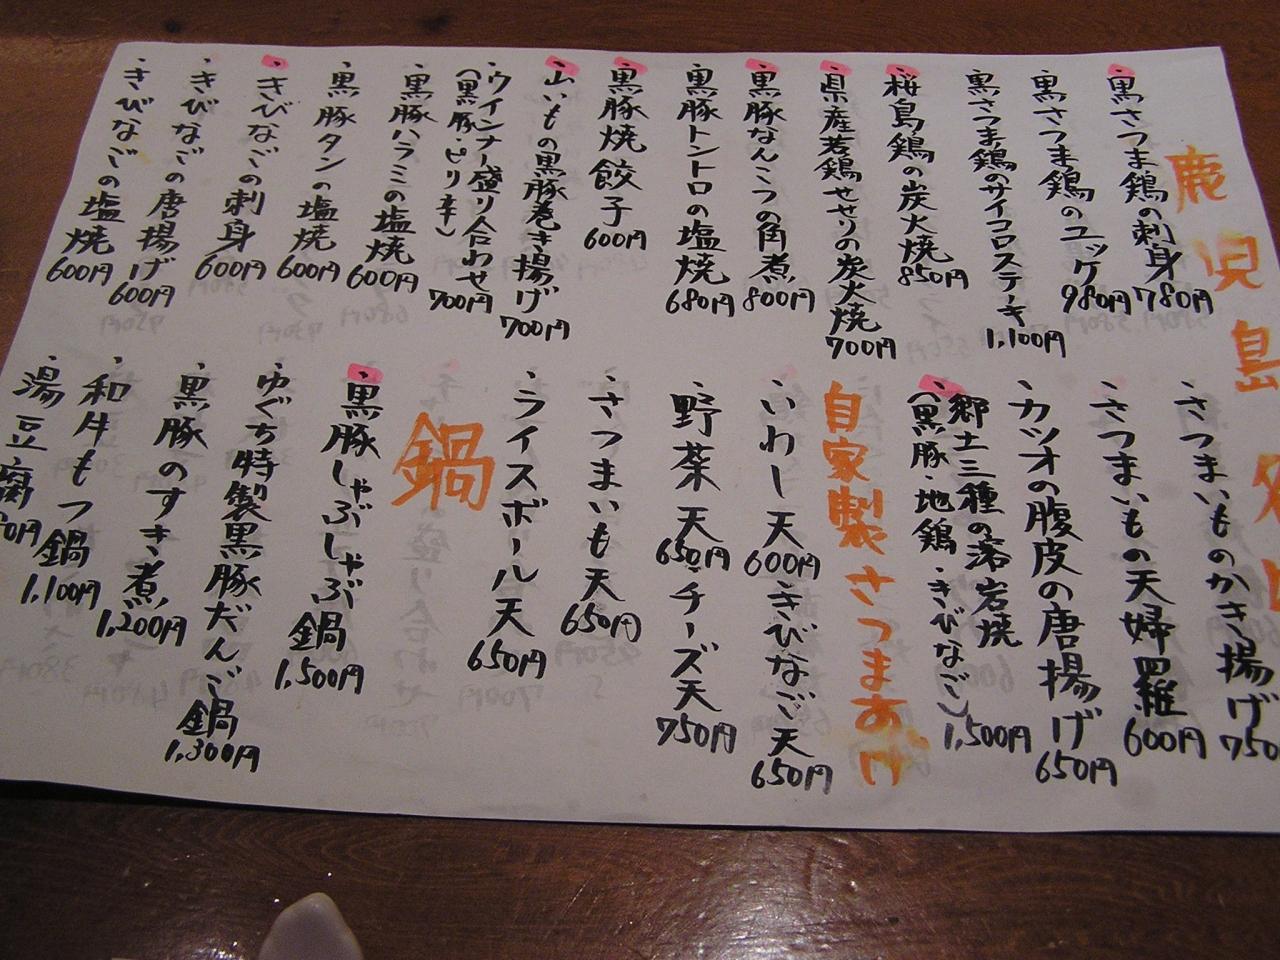 鹿児島名
・黒さつま鶏の刺身 780円
・黒さつま鶏のユッケ 980円
・黒さつま鶏のサイコロステーキ 1,100円
・桜島鶏の炭火焼 850円
・県産若鶏せせりの炭火焼 700円
・黒豚なんこつの角煮 800円
・黒豚トントロの塩焼 680円
・黒豚焼餃子 600円
・山いもの黒豚巻き揚げ 700円
・ウインナー盛り合わせ 700円
(黒豚・ピリ辛)
・黒豚ハラミの塩焼 600円
・黒豚タンの塩焼 600円
・きびなごの刺身 600円
・きびなごの唐揚げ 600円
・きびなごの塩焼 600円
・さつまいものかき揚げ 750
・さつまいもの天婦羅 600円
・カツオの腹皮の唐揚げ 650円
・郷土三種の溶岩焼 1,500円
(黒豚・地鶏・きびなご)
自家製さつまあげ
・いわし天 600円
・きびなご天 650円
・野菜天 650円
・チーズ天 750円
・さつまいも天 650円
・ライスボール天 650円
鍋
・黒豚しゃぶしゃぶ鍋 1,500円
・ゆぐち特製黒豚だんご鍋 1,300円
・黒豚のすき煮 1,200円
・和牛もつ鍋 1,100円
・湯豆腐